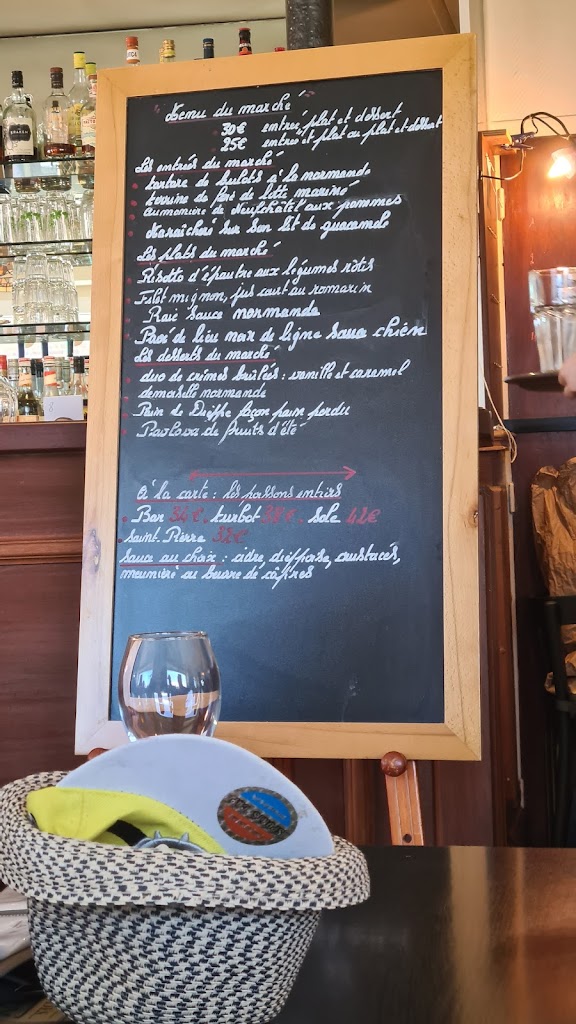 " Menu du marché "
30€ entrée, plat et dessert
25€ entrée et plat ou plat et dessert
Les entrées du marché
tartare de bulots à la normande
terrine de foie de lotte mariné
aumonière de Neufchâtel aux pommes
Maraîchère sur son lit de guacamole
Les plats du marché
Risotto d'épautre aux légumes rôtis
Filet mignon, jus court au romarin
Raie sauce normande
Pavé de lieu noir de ligne sauce chien
Les desserts du marché
duo de crèmes brûlées : vanille et caramel
demoiselle normande
Pain de Dieppe façon pain perdu
Pavlova de fruits d'été
à la carte : les poissons entiers
Bar 34€. turbot 38€. sole 42€
. Saint-Pierre 38€
sauce au choix : cidre, dieppoise, crustacés,
meunière ou beurre de câpres